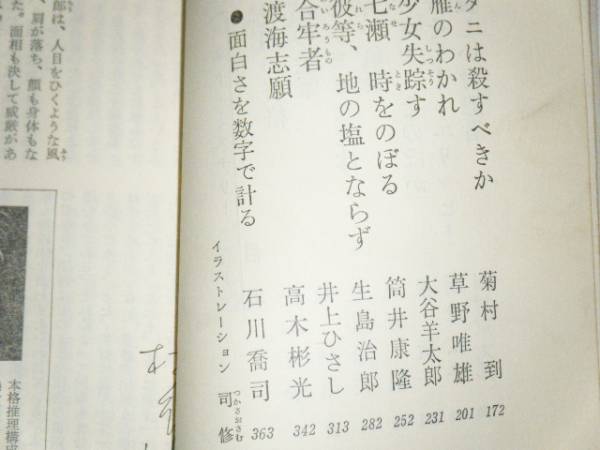 ダニは殺すべきか 菊村 到 172
雁のわかれ 草野唯雄 201
少女失踪す 大谷羊太郎 231
七瀬 時をのぼる 筒井康隆 252
彼等、地の塩とならず 生島治郎 282
合牢者 井上ひさし 313
渡海志願 高木彬光 342
面白さを数字で計る 石川喬司 363
イラストレーション 司 修
郎は、人目をひくような風
、肩が落ち、顔も身体もな
た。面相も決して威厳があ
本格推理構成